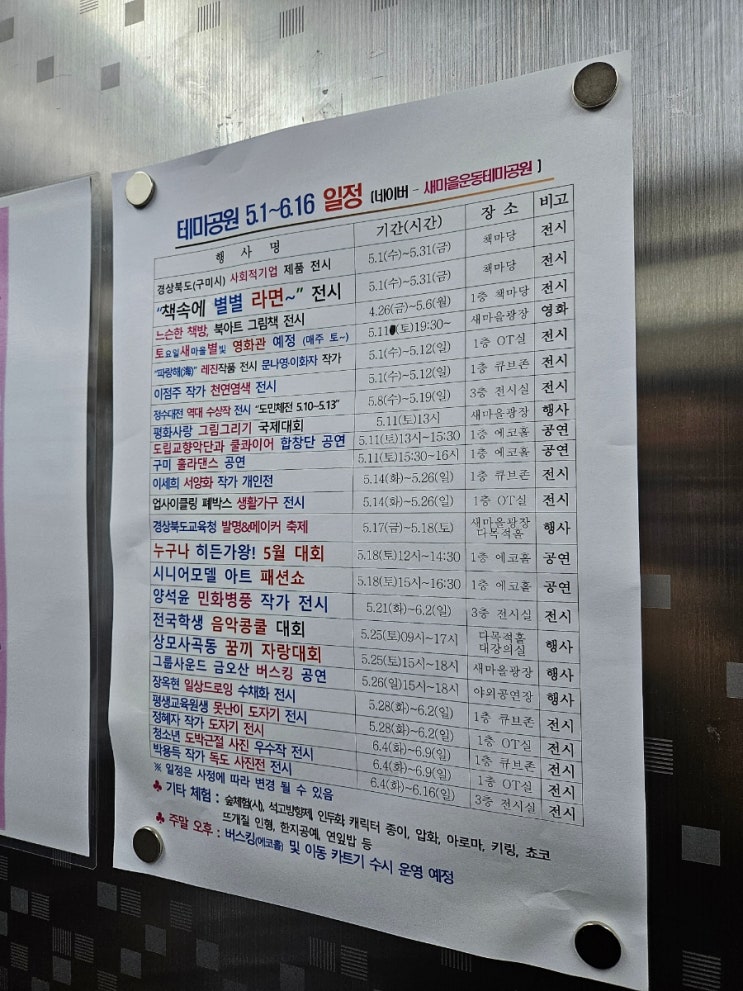 테마공원 5.1~6.16 일정 [네이버 - 새마을운동테마공원 ]
행 사 명 기간(시간) 장 소 비고
경상북도(구미시) 사회적기업 제품 전시 5.1(수)~5.31(금) 책마당 전시
"책속에 별별 라면~" 전시 5.1(수)~5.31(금) 책마당 전시
느슨한 책방, 북아트 그림책 전시 4.26(금)~5.6(월) 1층 책마당 전시
토요일새마을별빛 영화관 예정 (매주 토~) 5.11(토)19:30~ 새마을광장 영화
"파랑해(海)" 레진작품 전시 문나영·이화자 작가 5.1(수)~5.12(일) 1층 OT실 전시
이정주 작가 천연염색 전시 5.1(수)~5.12(일) 1층 큐브존 전시
정수대전 역대 수상작 전시 "도민체전 5.10~5.13" 5.8(수)~5.19(일) 3층 전시실 전시
평화사랑 그림그리기 국제대회 5.11(토)13시 새마을광장 행사
도립교향악단과 쿨콰이어 합창단 공연 5.11(토)13시~15:30 1층 에코홀 공연
구미 훌라댄스 공연 5.11(토)15:30~16시 1층 에코홀 공연
이세희 서양화 작가 개인전 5.14(화)~5.26(일) 1층 큐브존 전시
업사이클링 폐박스 생활가구 전시 5.14(화)~5.26(일) 1층 OT실 전시
경상북도교육청 발명&메이커 축제 5.17(금)~5.18(토) 새마을광장 다목적홀 행사
누구나 히든가왕! 5월 대회 5.18(토)12시~14:30 1층 에코홀 공연
시니어모델 아트 패션쇼 5.18(토)15시~16:30 1층 에코홀 공연
양석윤 민화병풍 작가 전시 5.21(화)~6.2(일) 3층 전시실 전시
전국학생 음악콩쿨 대회 5.25(토)09시~17시 다목적홀 대강의실 행사
상모사곡동 꿈끼 자랑대회 5.25(토)15시~18시 새마을광장 행사
그룹사운드 금오산 버스킹 공연 5.26(일)15시~18시 야외공연장 행사
장옥현 일상드로잉 수채화 전시 5.28(화)~6.2(일) 1층 큐브존 전시
평생교육원생 못난이 도자기 전시 5.28(화)~6.2(일) 1층 OT실 전시
정혜자 작가 도자기 전시 6.4(화)~6.9(일) 1층 큐브존 전시
청소년 도박근절 사진 우수작 전시 6.4(화)~6.9(일) 1층 OT실 전시
박용득 작가 독도 사진전 전시 6.4(화)~6.16(일) 3층 전시실 전시
※ 일정은 사정에 따라 변경 될 수 있음
♣ 기타 체험 : 숲체험(사), 석고방향제, 인두화 캐릭터 종이, 압화, 아로마, 키링, 쵸코
뜨개질 인형, 한지공예, 연잎밥 등
♣ 주말 오후 : 버스킹(에코홀) 및 이동 카트기 수시 운영 예정